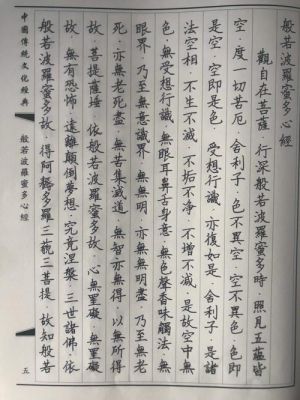 般若波羅蜜多心經
觀自在菩薩·行深般若波羅蜜多時·照見五蘊皆
空·度一切苦厄·舍利子·色不異空·空不異色·色即
是空·空即是色·受想行識·亦復如是·舍利子·是諸
法空相·不生不滅·不垢不淨·不增不減·是故空中無
色·無受想行識·無眼耳鼻舌身意·無色聲香味觸法·無
眼界·乃至無意識界·無無明·亦無無明盡·乃至無老
死·亦無老死盡·無苦集滅道·無智亦無得·以無所得
故·菩提薩埵·依般若波羅蜜多故·心無罣礙·無罣礙
故·無有恐怖·遠離顛倒夢想·究竟涅槃·三世諸佛·依
般若波羅蜜多故·得阿耨多羅三藐三菩提·故知般若
中國傳統文化經典
般若波羅蜜多心經
五